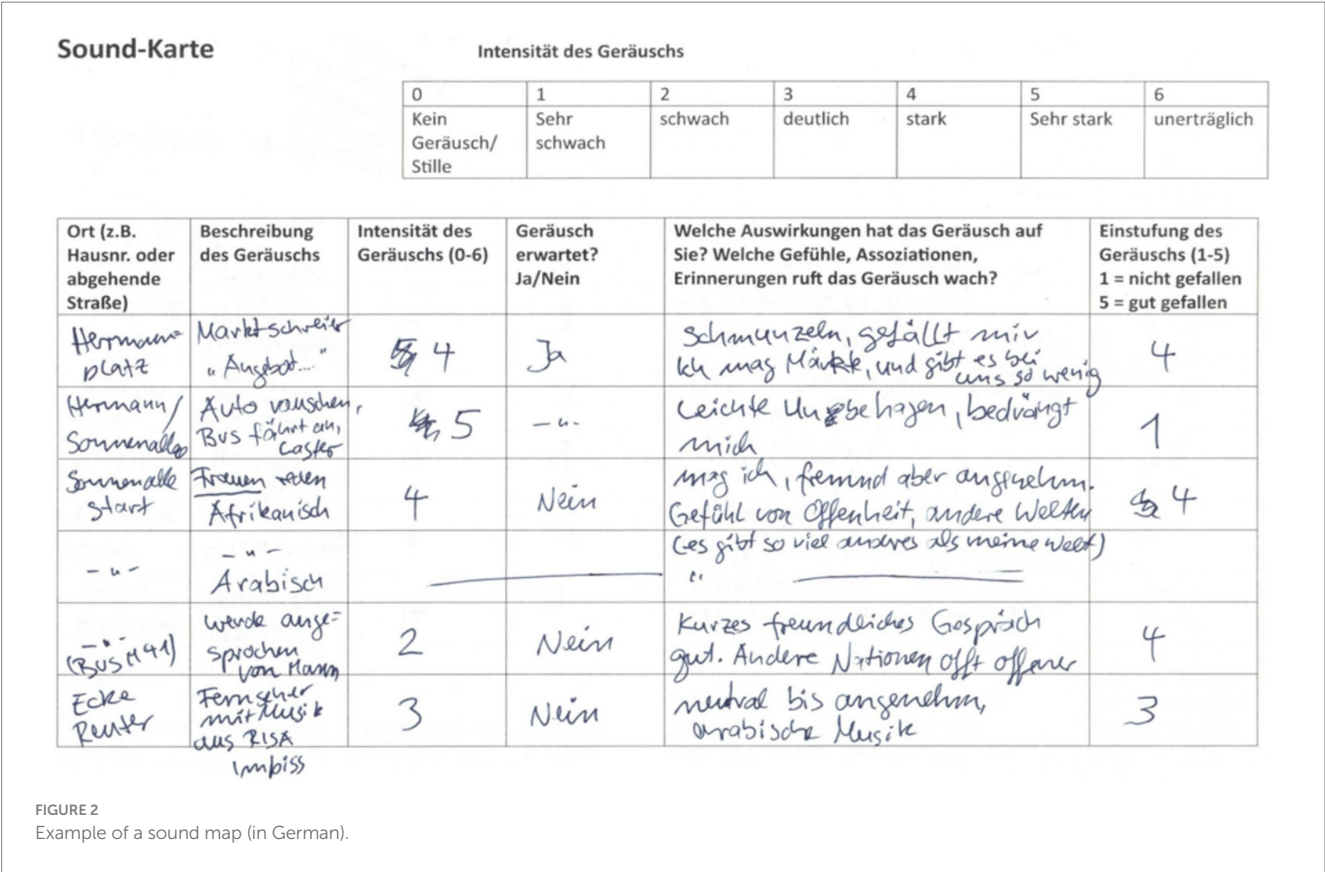 Sound-Karte
Intensität des Geräuschs
0 1 2 3 4 5 6
Kein Geräusch/ Stille
Sehr schwach
schwach
deutlich
stark
Sehr stark
unerträglich
Ort (z.B. Hausnr. oder abgehende Straße)
Beschreibung des Geräuschs
Intensität des Geräuschs (0-6)
Geräusch erwartet? Ja/Nein
Welche Auswirkungen hat das Geräusch auf Sie? Welche Gefühle, Assoziationen, Erinnerungen ruft das Geräusch wach?
Einstufung des Geräuschs (1-5) 1 = nicht gefallen 5 = gut gefallen
Hermann=
platz
Marktschreier
"Angebot..."
4
Ja
Schmunzeln, gefällt mir
Ich mag Märkte, und gibt es bei
uns so wenig
4
Hermann/
Sonnenallee
Auto rauschen,
Bus fährt an,
Laster
5
-"-
Leichte Unbehagen, bedrängt
mich
1
Sonnenalle
Start
Frauen reden
Afrikanisch
4
Nein
mag ich, fremnd aber angenehm.
Gefühl von Offenheit, andere Welten
4
-"-
-"-
Arabisch
(es gibt so viel anderes als meine Welt)
"
-"-
(Bus M41)
werde ange=
sprochen
von Mann
2
Nein
Kurzes freundliches Gespräch
gut. Andere Nationen offt offener
4
Ecke
Reuter
Fernseher
mit Musik
aus RISA
Imbiss
3
Nein
neutral bis angenehm,
arabische Musik
3
FIGURE 2
Example of a sound map (in German).